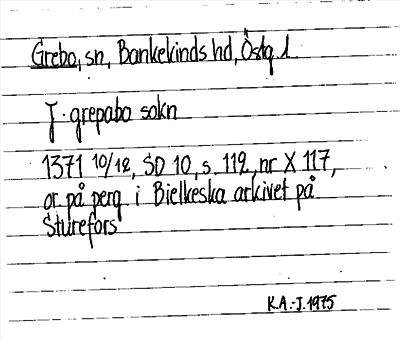 Grebo, sn, Bankekinds hd, Östg. l
J. grepabo sokn
1371 10/12, SD 10, s. 112, nr X 117,
or. på perg. i Bielkeska arkivet på
Sturefors
K.A.-J. 1975